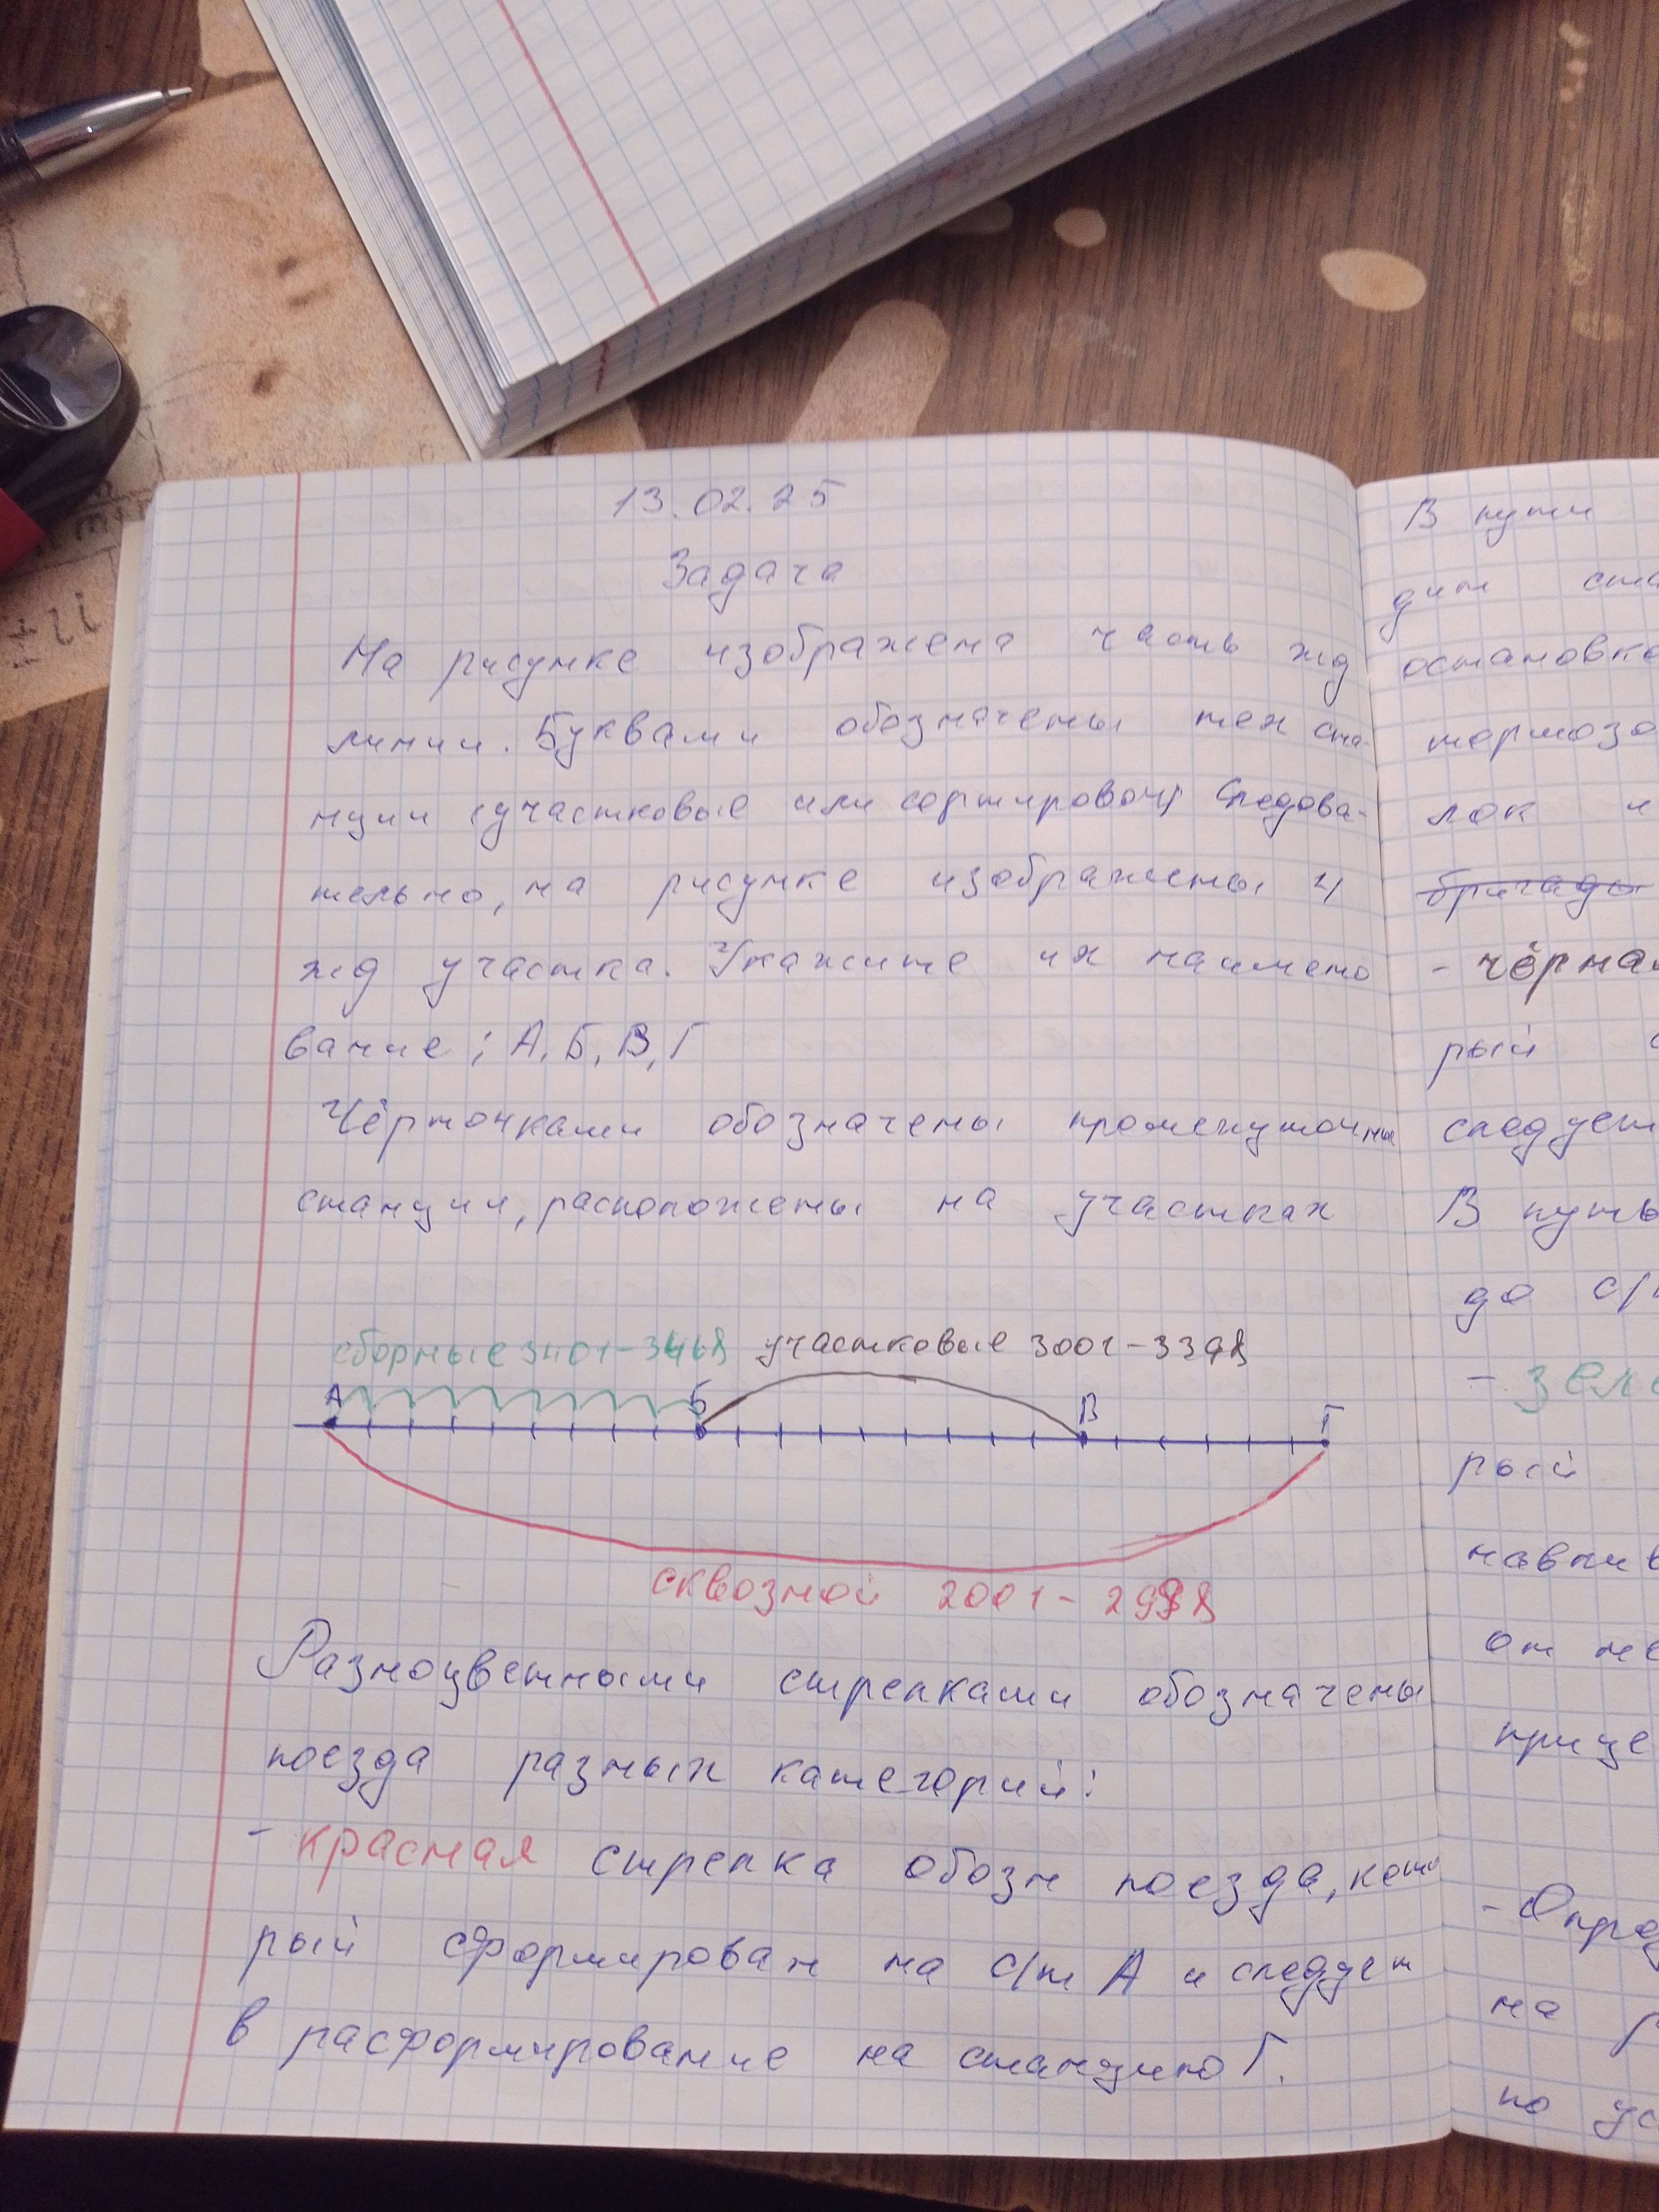 13.02.25
Задача
На рисунке изображена часть жд
линии. Буквами обозначены тех ста-
нции (участковые или сортировоч) Следова-
тельно, на рисунке изображены 4
жд участка. Укажите их наимено
вание; А, Б, В, Г
Чёрточками обозначены промежуточны
станции, расположены на участках
сборные 3401-3468 участковые 3001-3398
А Б В Г
сквозной 2001-2998
Разноцветными стрелками обозначены
поезда разных категорий:
- красная стрелка обозн поезда, кото
рый сформирован на с/т А и следует
в расформирование на станцию Г.
В пути
дит ста
остановко
тормозо
лок и
бригады
- чёрная
рый с
следует
В путь
до с/т
- зел
рый
навлив
от не
прице
- Опред
на р
по ус